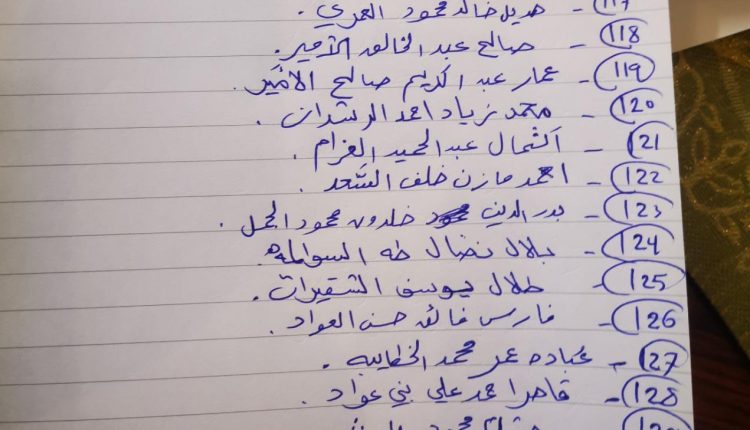 117 - هديل خالد محمود العمري .
118 - صالح عبد الخالق الأمير .
119 - عمار عبد الكريم صالح الأمير .
120 - محمد زياد احمد الرشدان .
121 - آشمال عبد الحميد العزام .
122 - احمد مازن خلف السعد .
123 - بدر الدين خلدون محمود الجمل .
124 - بلال نضال طه السوالمه .
125 - طلال يوسف الشقيرات .
126 - فارس فالح حسن العواد .
127 - عباده عمر محمد الخطايبه .
128 - احمد علي بني عواد .